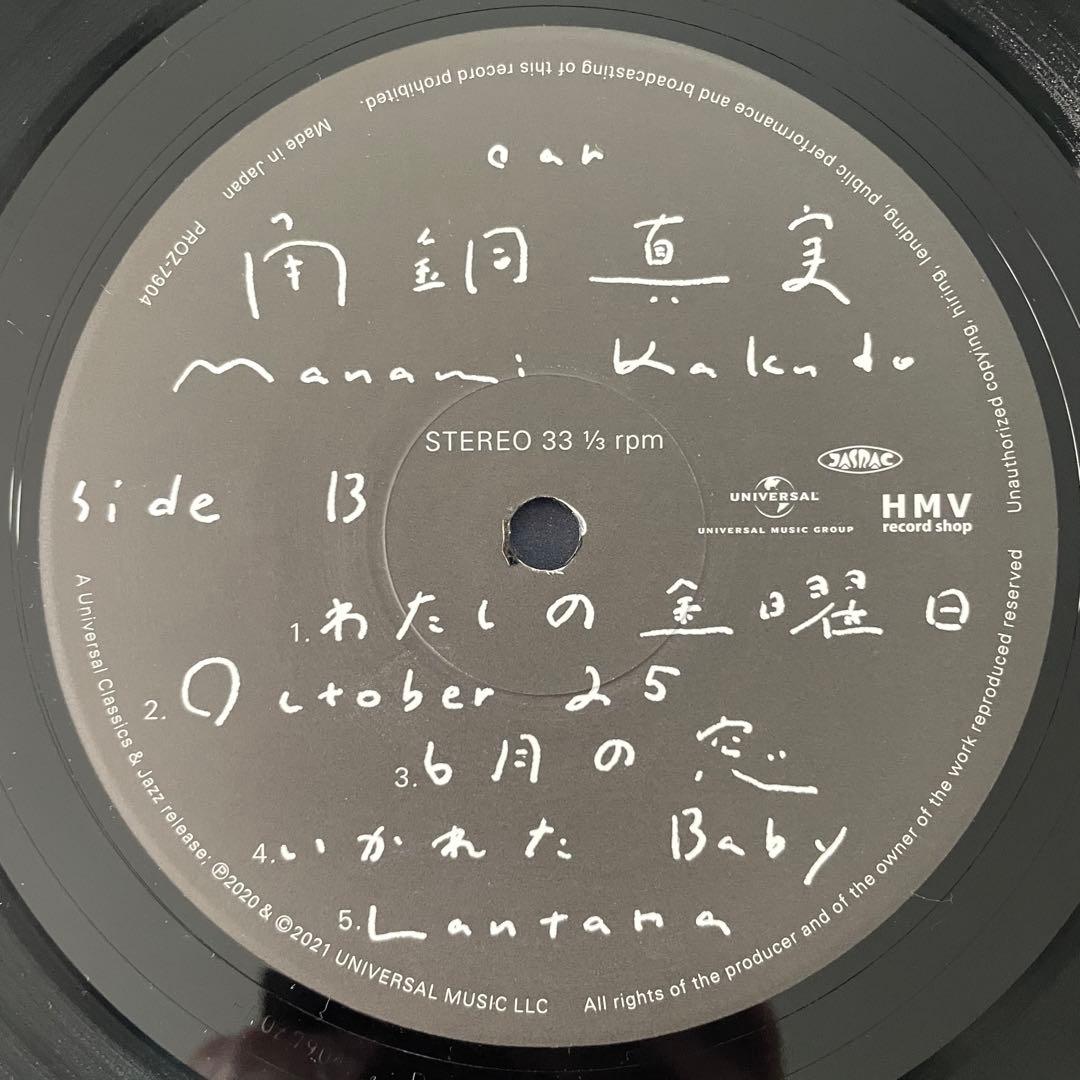 oar
角銅真実
Manami Kakudo
STEREO 33 ⅓ rpm
JASRAC
UNIVERSAL
UNIVERSAL MUSIC GROUP
HMV
record shop
side B
1. わたしの金曜日
2. October 25
3. 6月の窓
4. いかれた Baby
5. Lantana
PROZ-7904
Made in Japan
Unauthorized copying, hiring, lending, public performance and broadcasting of this record prohibited.
A Universal Classics & Jazz release: ℗2020 & ©2021 UNIVERSAL MUSIC LLC
All rights of the producer and of the owner of the work reproduced reserved